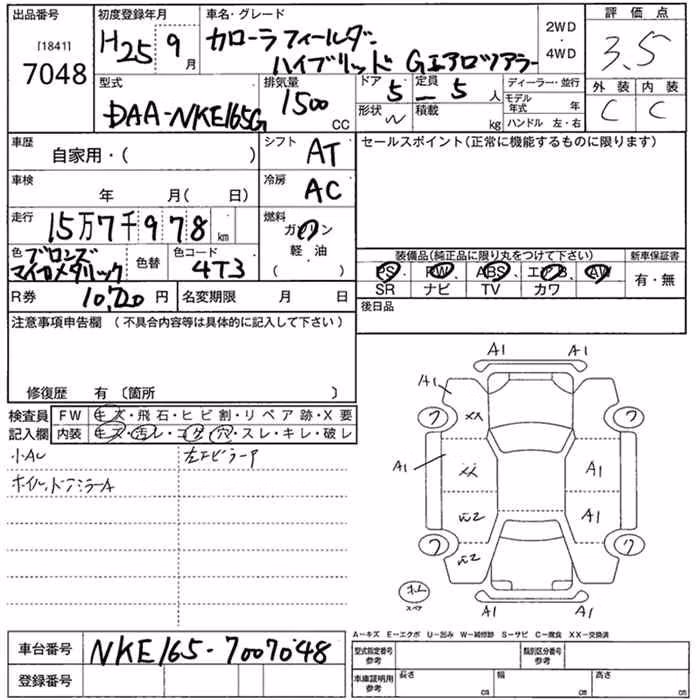 出品番号 [1841] 7048
初度登録年月 H25年9月
車名・グレード カローラフィールダー
ハイブリッド Gエアロツアラー
2WD・4WD
評価点 3.5
外装 内装
C C
型式 DAA-NKE165G
排気量 1500 CC
ドア 5
形状 W
定員 5 人
積載 kg
ディーラー・並行
モデル年式 年
ハンドル 左・右
車歴 自家用・( )
シフト AT
車検 年 月( 日)
冷房 AC
走行 15万7千978 km
燃料 ガソリン
軽油
( )
色 ブロンズ
マイカメタリック
色替
色コード 4T3
R券 円
名変期限 月 日
セールスポイント(正常に機能するものに限ります)
装備品(純正品に限り丸をつけて下さい)
新車保証書
PS PW ABS エアB AW
有・無
SR ナビ TV カワ
後日品
注意事項申告欄 (不具合内容等は具体的に記入して下さい)
修復歴 有 〔箇所 〕
検査員記入欄
FW キズ・飛石・ヒビ割・リペア跡・X要
内装 キズ・汚レ・コゲ・穴・スレ・キレ・破レ
小AU
ホイル、ドアミラーA
A1 A1
A1
ワ XX ワ
A1 XX A1
W2 A1
ワ W2 ワ
スペア
A1 A1
A-キズ E-エクボ U-凹み W-補修跡 S-サビ C-腐食 XX-交換済
車台番号 NKE165-7007048
登録番号
型式指定番号 参考
類別区分番号 参考
車庫証明用 参考
長さ cm 幅 cm 高さ cm